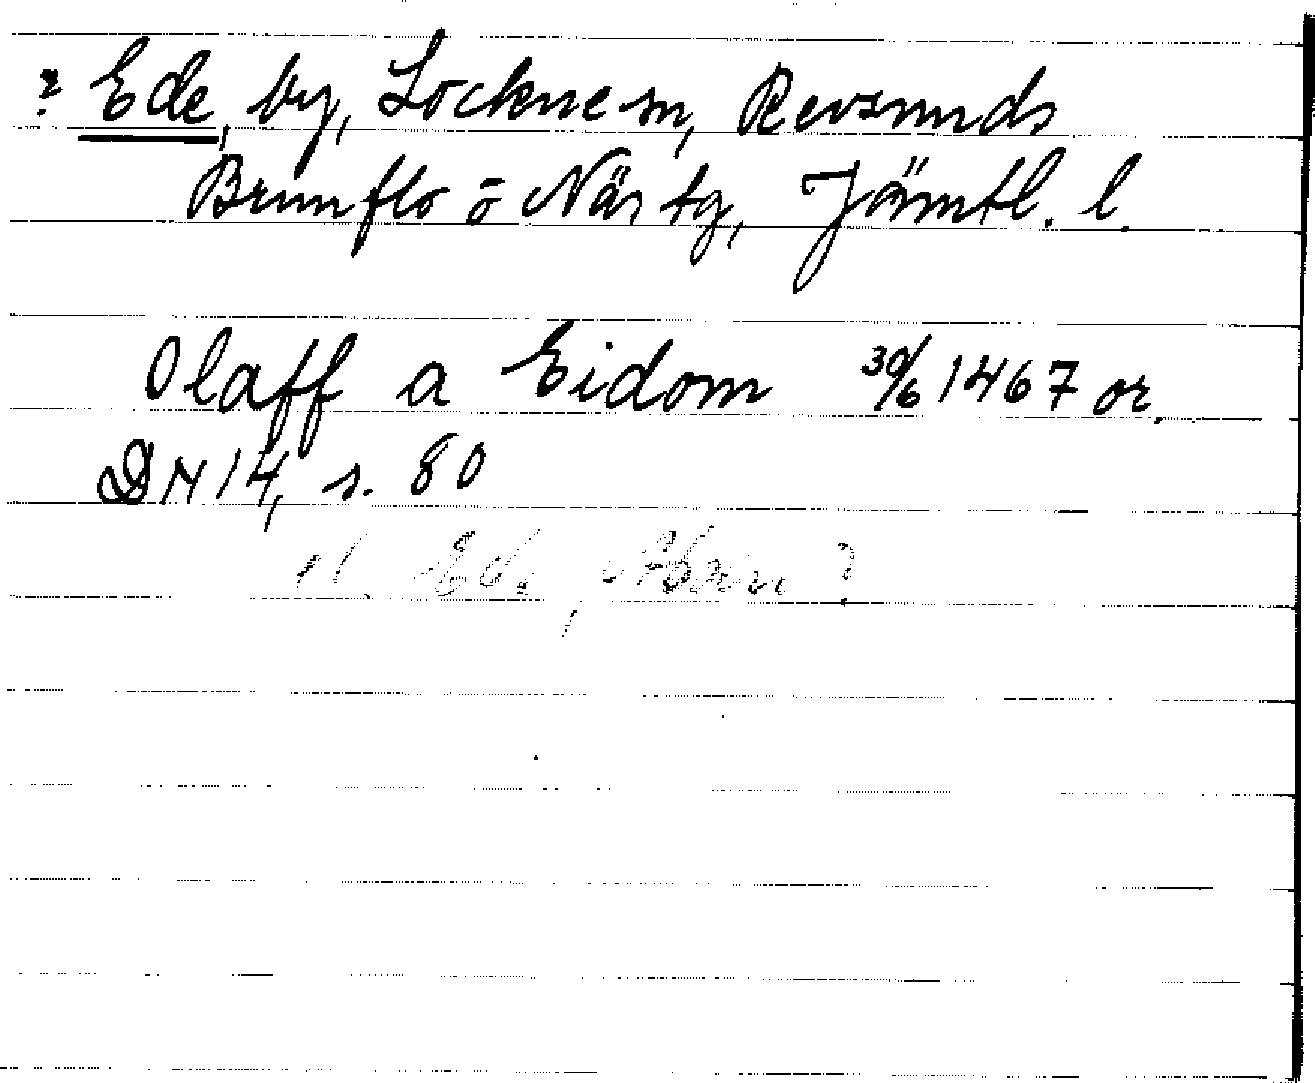 ? Ede, by, Lockne sn, Revsunds
Brunflo ō Näs tg, Jämtl. l.
Olaff a Eidom 30/6 1467 or.
DN 14, s. 80
el. Ede,